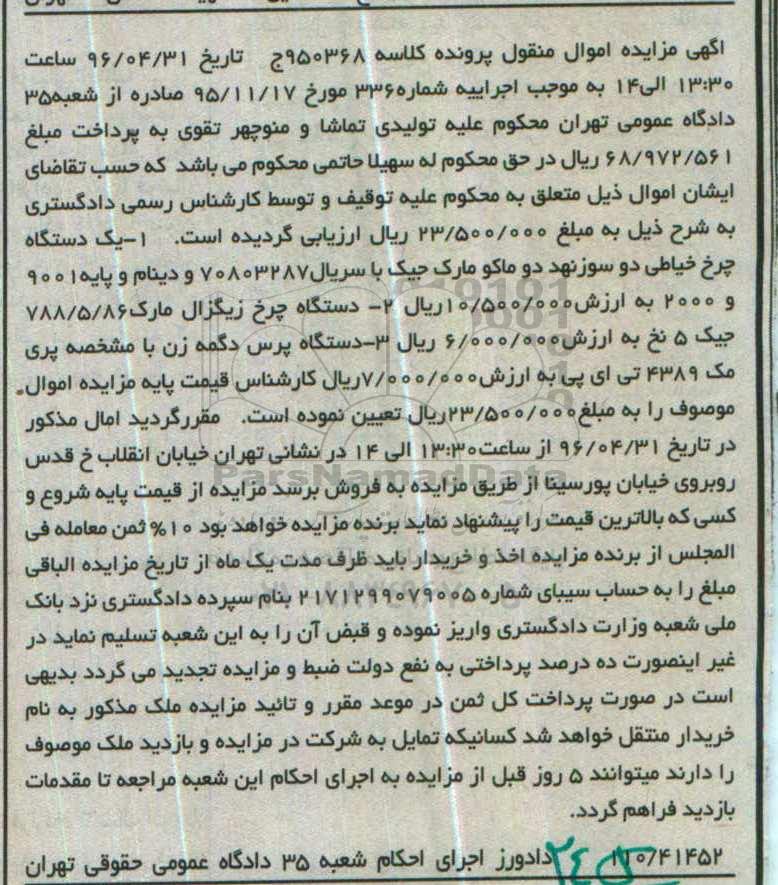 اگهی مزایده اموال منقول پرونده کلاسه ۹۵۰۳۶۸ج تاریخ ۹۶/۰۴/۳۱ ساعت
۱۳:۳۰ الی۱۴ به موجب اجراییه شماره۳۳۶ مورخ ۹۵/۱۱/۱۷ صادره از شعبه۳۵
دادگاه عمومی تهران محکوم علیه تولیدی تماشا و منوچهر تقوی به پرداخت مبلغ
۶۸/۹۷۲/۵۶۱ ریال در حق محکوم له سهیلا حاتمی محکوم می باشد که حسب تقاضای
ایشان اموال ذیل متعلق به محکوم علیه توقیف و توسط کارشناس رسمی دادگستری
به شرح ذیل به مبلغ ۲۳/۵۰۰/۰۰۰ ریال ارزیابی گردیده است. ۱-یک دستگاه
چرخ خیاطی دو سوزنهد دو ماکو مارک جیک با سریال۷۰۸۰۳۲۸۷ و دینام و پایه۹۰۰۱
و ۲۰۰۰ به ارزش۱۰/۵۰۰/۰۰۰ریال ۲- دستگاه چرخ زیگزال مارک۷۸۸/۵/۸۶
جیک ۵ نخ به ارزش۶/۰۰۰/۰۰۰ ریال ۳-دستگاه پرس دگمه زن با مشخصه پری
مک ۴۳۸۹ تی ای پی به ارزش۷/۰۰۰/۰۰۰ریال کارشناس قیمت پایه مزایده اموال
موصوف را به مبلغ۲۳/۵۰۰/۰۰۰ریال تعیین نموده است. مقررگردید امال مذکور
در تاریخ ۹۶/۰۴/۳۱ از ساعت۱۳:۳۰ الی ۱۴ در نشانی تهران خیابان انقلاب خ قدس
روبروی خیابان پورسینا از طریق مزایده به فروش برسد مزایده از قیمت پایه شروع و
کسی که بالاترین قیمت را پیشنهاد نماید برنده مزایده خواهد بود ۱۰% ثمن معامله فی
المجلس از برنده مزایده اخذ و خریدار باید ظرف مدت یک ماه از تاریخ مزایده الباقی
مبلغ را به حساب سیبای شماره ۲۱۷۱۲۹۹۰۷۹۰۰۵ بنام سپرده دادگستری نزد بانک
ملی شعبه وزارت دادگستری واریز نموده و قبض آن را به این شعبه تسلیم نماید در
غیر اینصورت ده درصد پرداختی به نفع دولت ضبط و مزایده تجدید می گردد بدیهی
است در صورت پرداخت کل ثمن در موعد مقرر و تائید مزایده ملک مذکور به نام
خریدار منتقل خواهد شد کسانیکه تمایل به شرکت در مزایده و بازدید ملک موصوف
را دارند میتوانند ۵ روز قبل از مزایده به اجرای احکام این شعبه مراجعه تا مقدمات
بازدید فراهم گردد.
۱۱۰/۴۱۴۵۲ دادورز اجرای احکام شعبه ۳۵ دادگاه عمومی حقوقی تهران
ParsNamadData